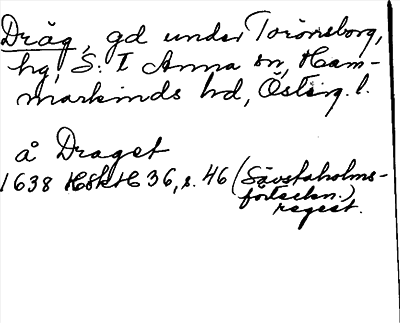 Dräg, gd under Torönsborg,
hg, S:T Anna sn, Ham-
markinds hd, Östg. l.
å Draget
1638 HSkH 36, s. 46 (Sävstaholms-
förteckn.)
regest.